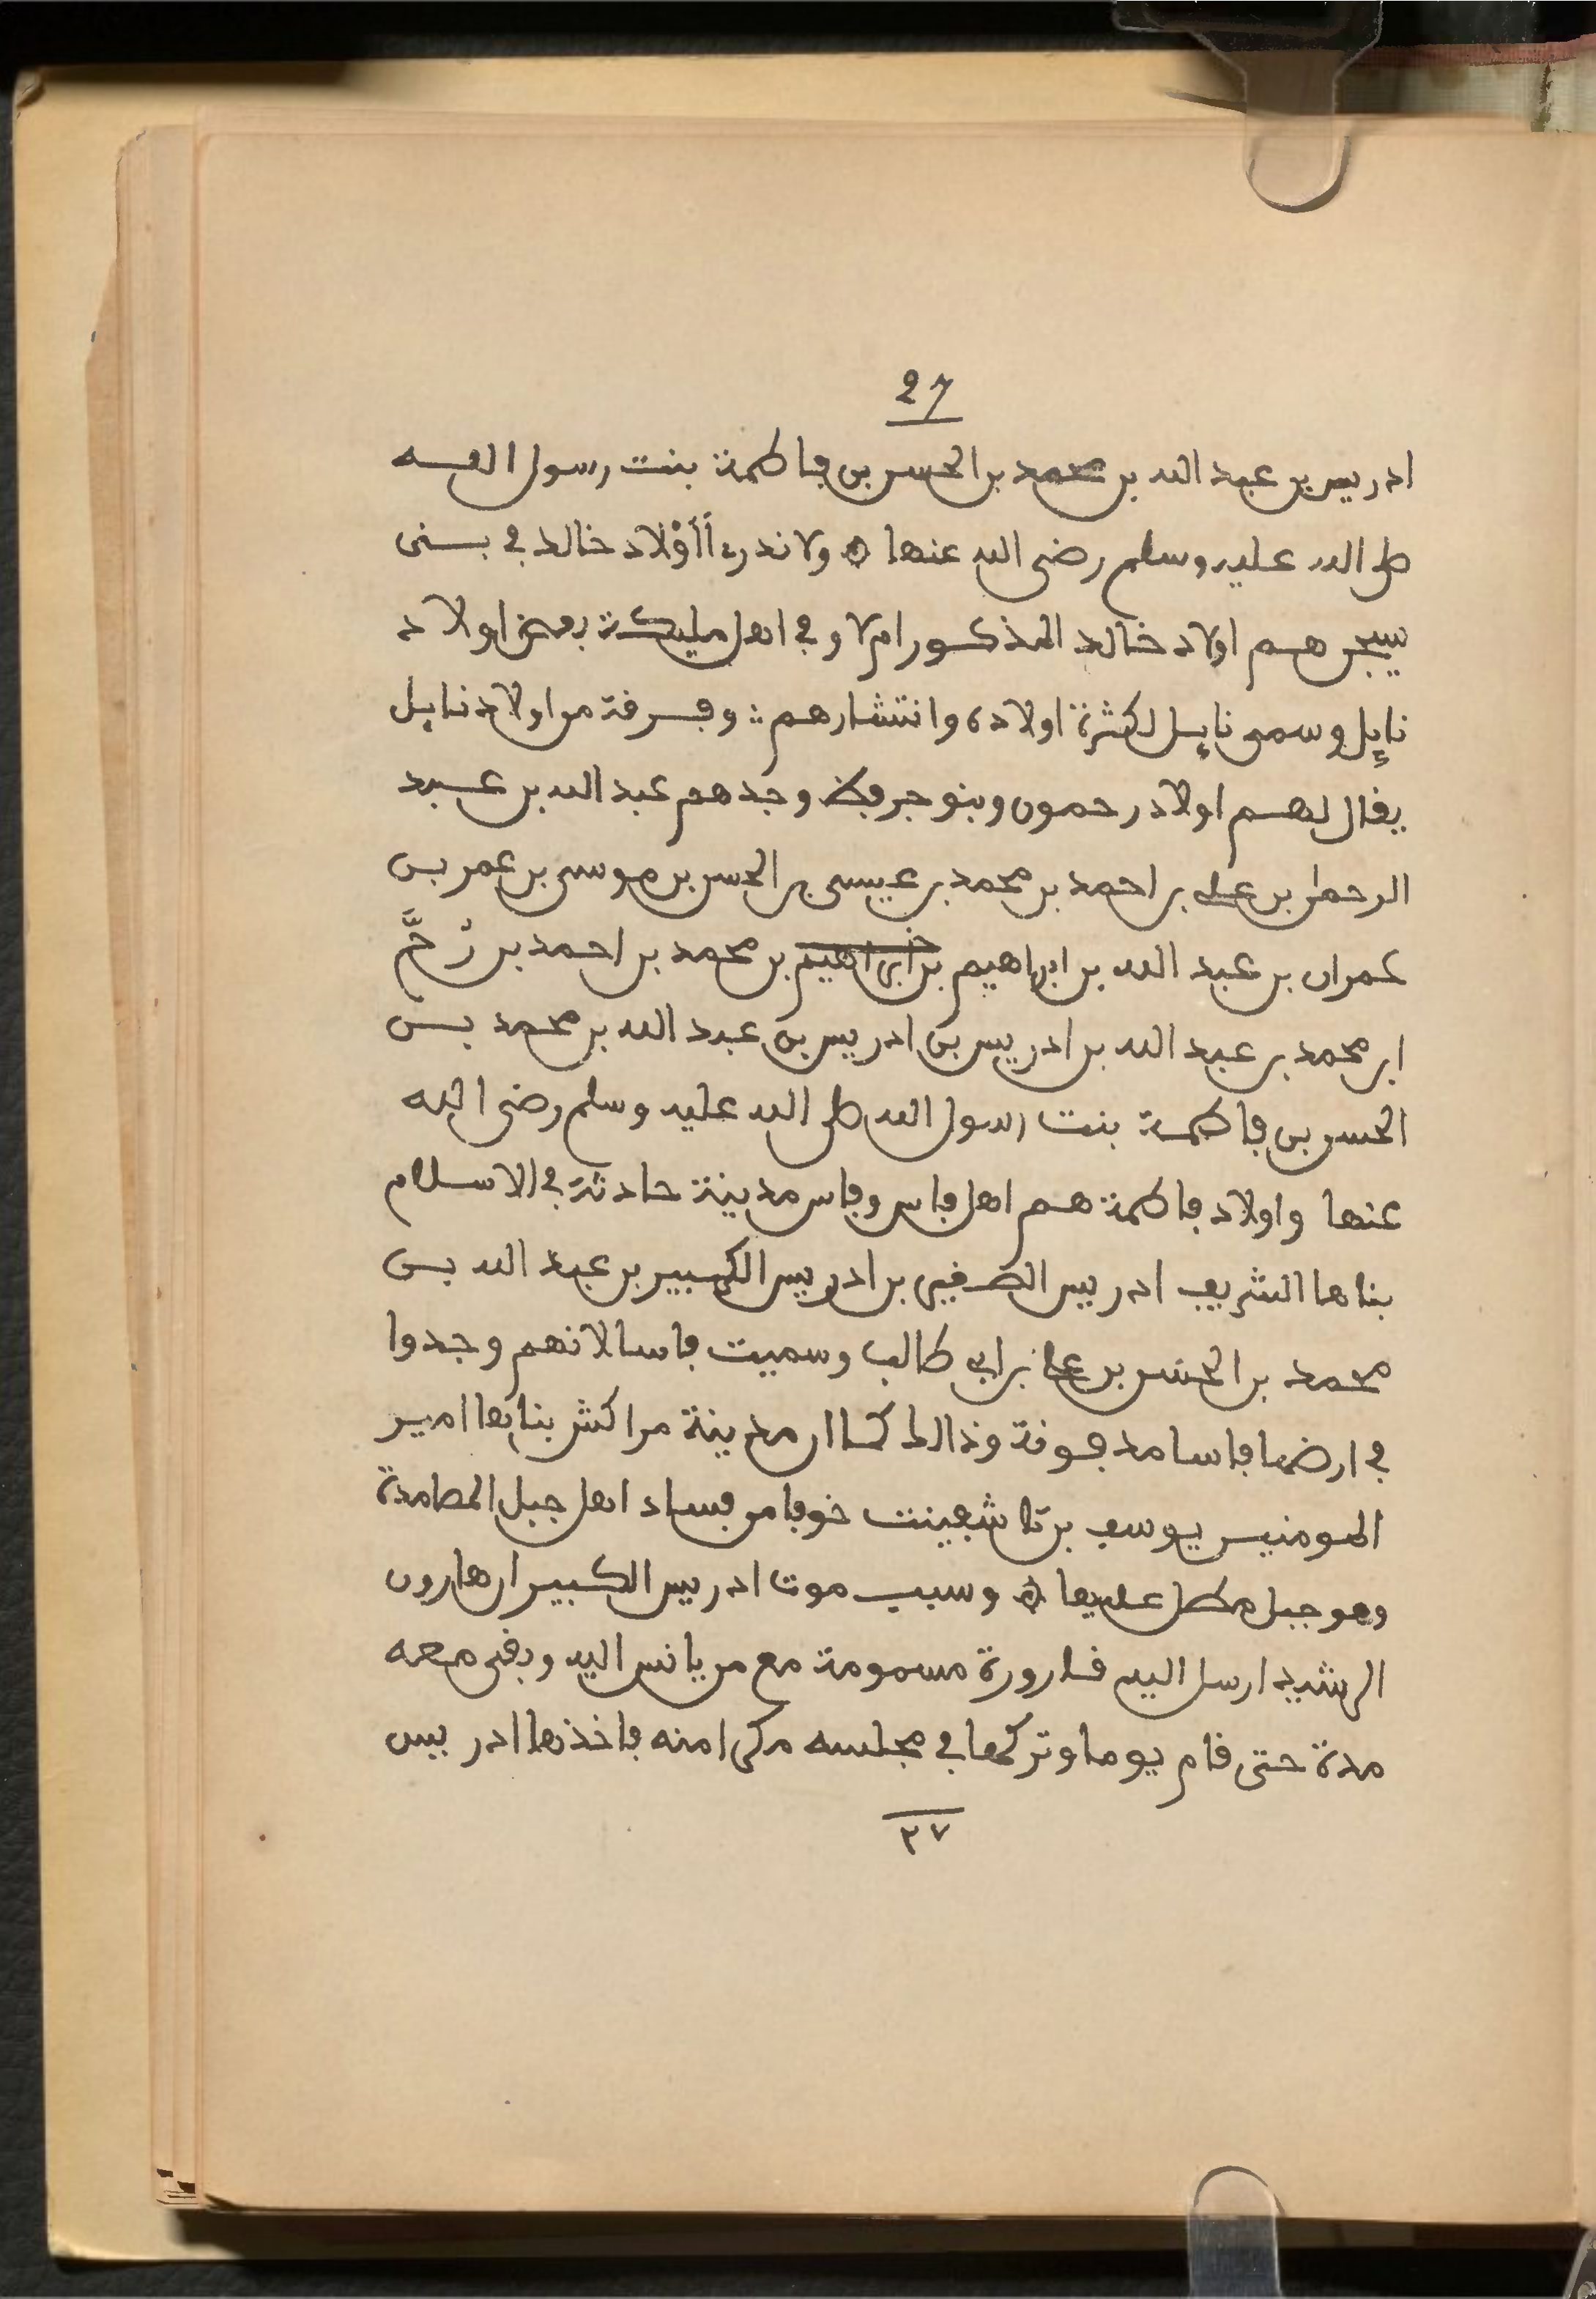 27
ادريس بن عبد الله بن محمد بن الحسن بن فاطمة بنت رسول الله
صلى الله عليه وسلم رضى الله عنها ۞ ولا ندرے أَأَوْلاد خالد في بنى
يسجن هم اولاد خالد المذكور ام لا وفي اهل مليكة بعض اولاد
نايل وسمى نايل لكثرة اولاده وانتشارهم : وفرقة من اولاد نايل
يقال لهم اولاد رحمون وبنو جرفط وجدهم عبد الله بن عبد
الرحمان بن على بن احمد بن محمد بن عيسى بن الحسن بن موسى بن عمر بن
عمران بن عبد الله بن ابراهيم بن ابراهيم بن محمد بن احمد بن زُحَّم
ابن محمد بن عبد الله بن ادريس بن ادريس بن عبد الله بن محمد بن
الحسن بن فاطمة بنت رسول الله صلى الله عليه وسلم رضى الله
عنها واولاد فاطمة هم اهل فاس وفاس مدينة حادثة في الاسلام
بناها الشريف ادريس الصغير بن ادريس الكبير بن عبد الله بن
محمد بن الحسن بن على بن ابي طالب وسميت فاسا لانهم وجدوا
في ارضها فاسا مدفونة وذالك كما ان مدينة مراكش بناها امير
المومنين يوسف بن تاشفينت خوفا من فساد اهل جبل المصامدة
وهو جبل مطل عليها ۞ وسبب موت ادريس الكبير ان هارون
الرشيد ارسل اليه قارورة مسمومة مع من يانس اليه وبقى معه
مدة حتى قام يوما وتركها في مجلسه مكرا منه فاخذها ادريس
٢٧